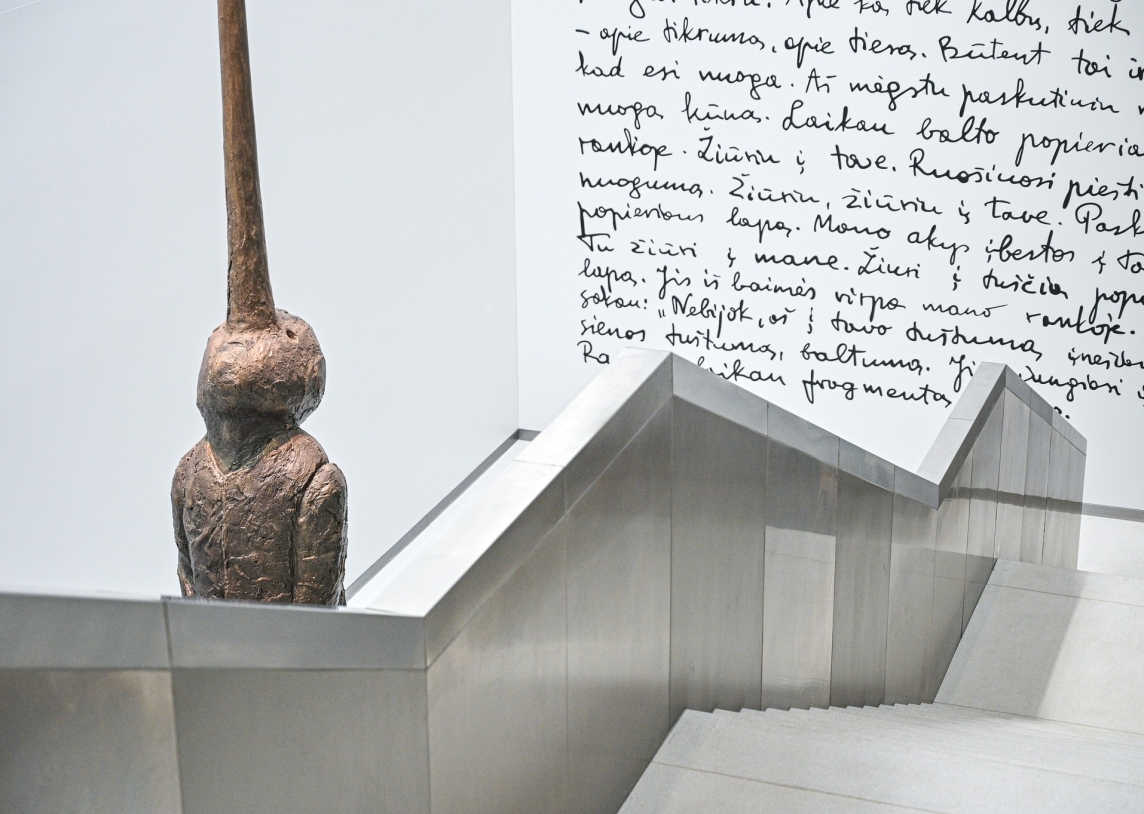 tikru. Apie ką tiek kalbu, tiek
- apie tikrumą, apie tiesą. Būtent tai
kad esi nuoga. Aš mėgstu paskutiniu
nuogą kūną. Laikau balto popieria
rankoje. Žiūriu į tave. Ruošiuosi piešti
nuogumą. Žiūriu, žiūriu į tave. Pask
popieriaus lapą. Mano akys įbestos į ta
Tu žiūri į mane. Žiūri į tuščią popi
lapą. Jis iš baimės virpa mano rankoje.
sakau: „Nebijok, aš į tavo tuštumą įnešiu
sienos tuštumą, baltumą. Ji
Ra laikau fragmentą